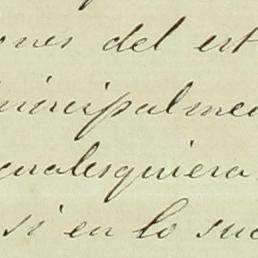 ones del est
principalmen
cualesquiera
si en lo suc